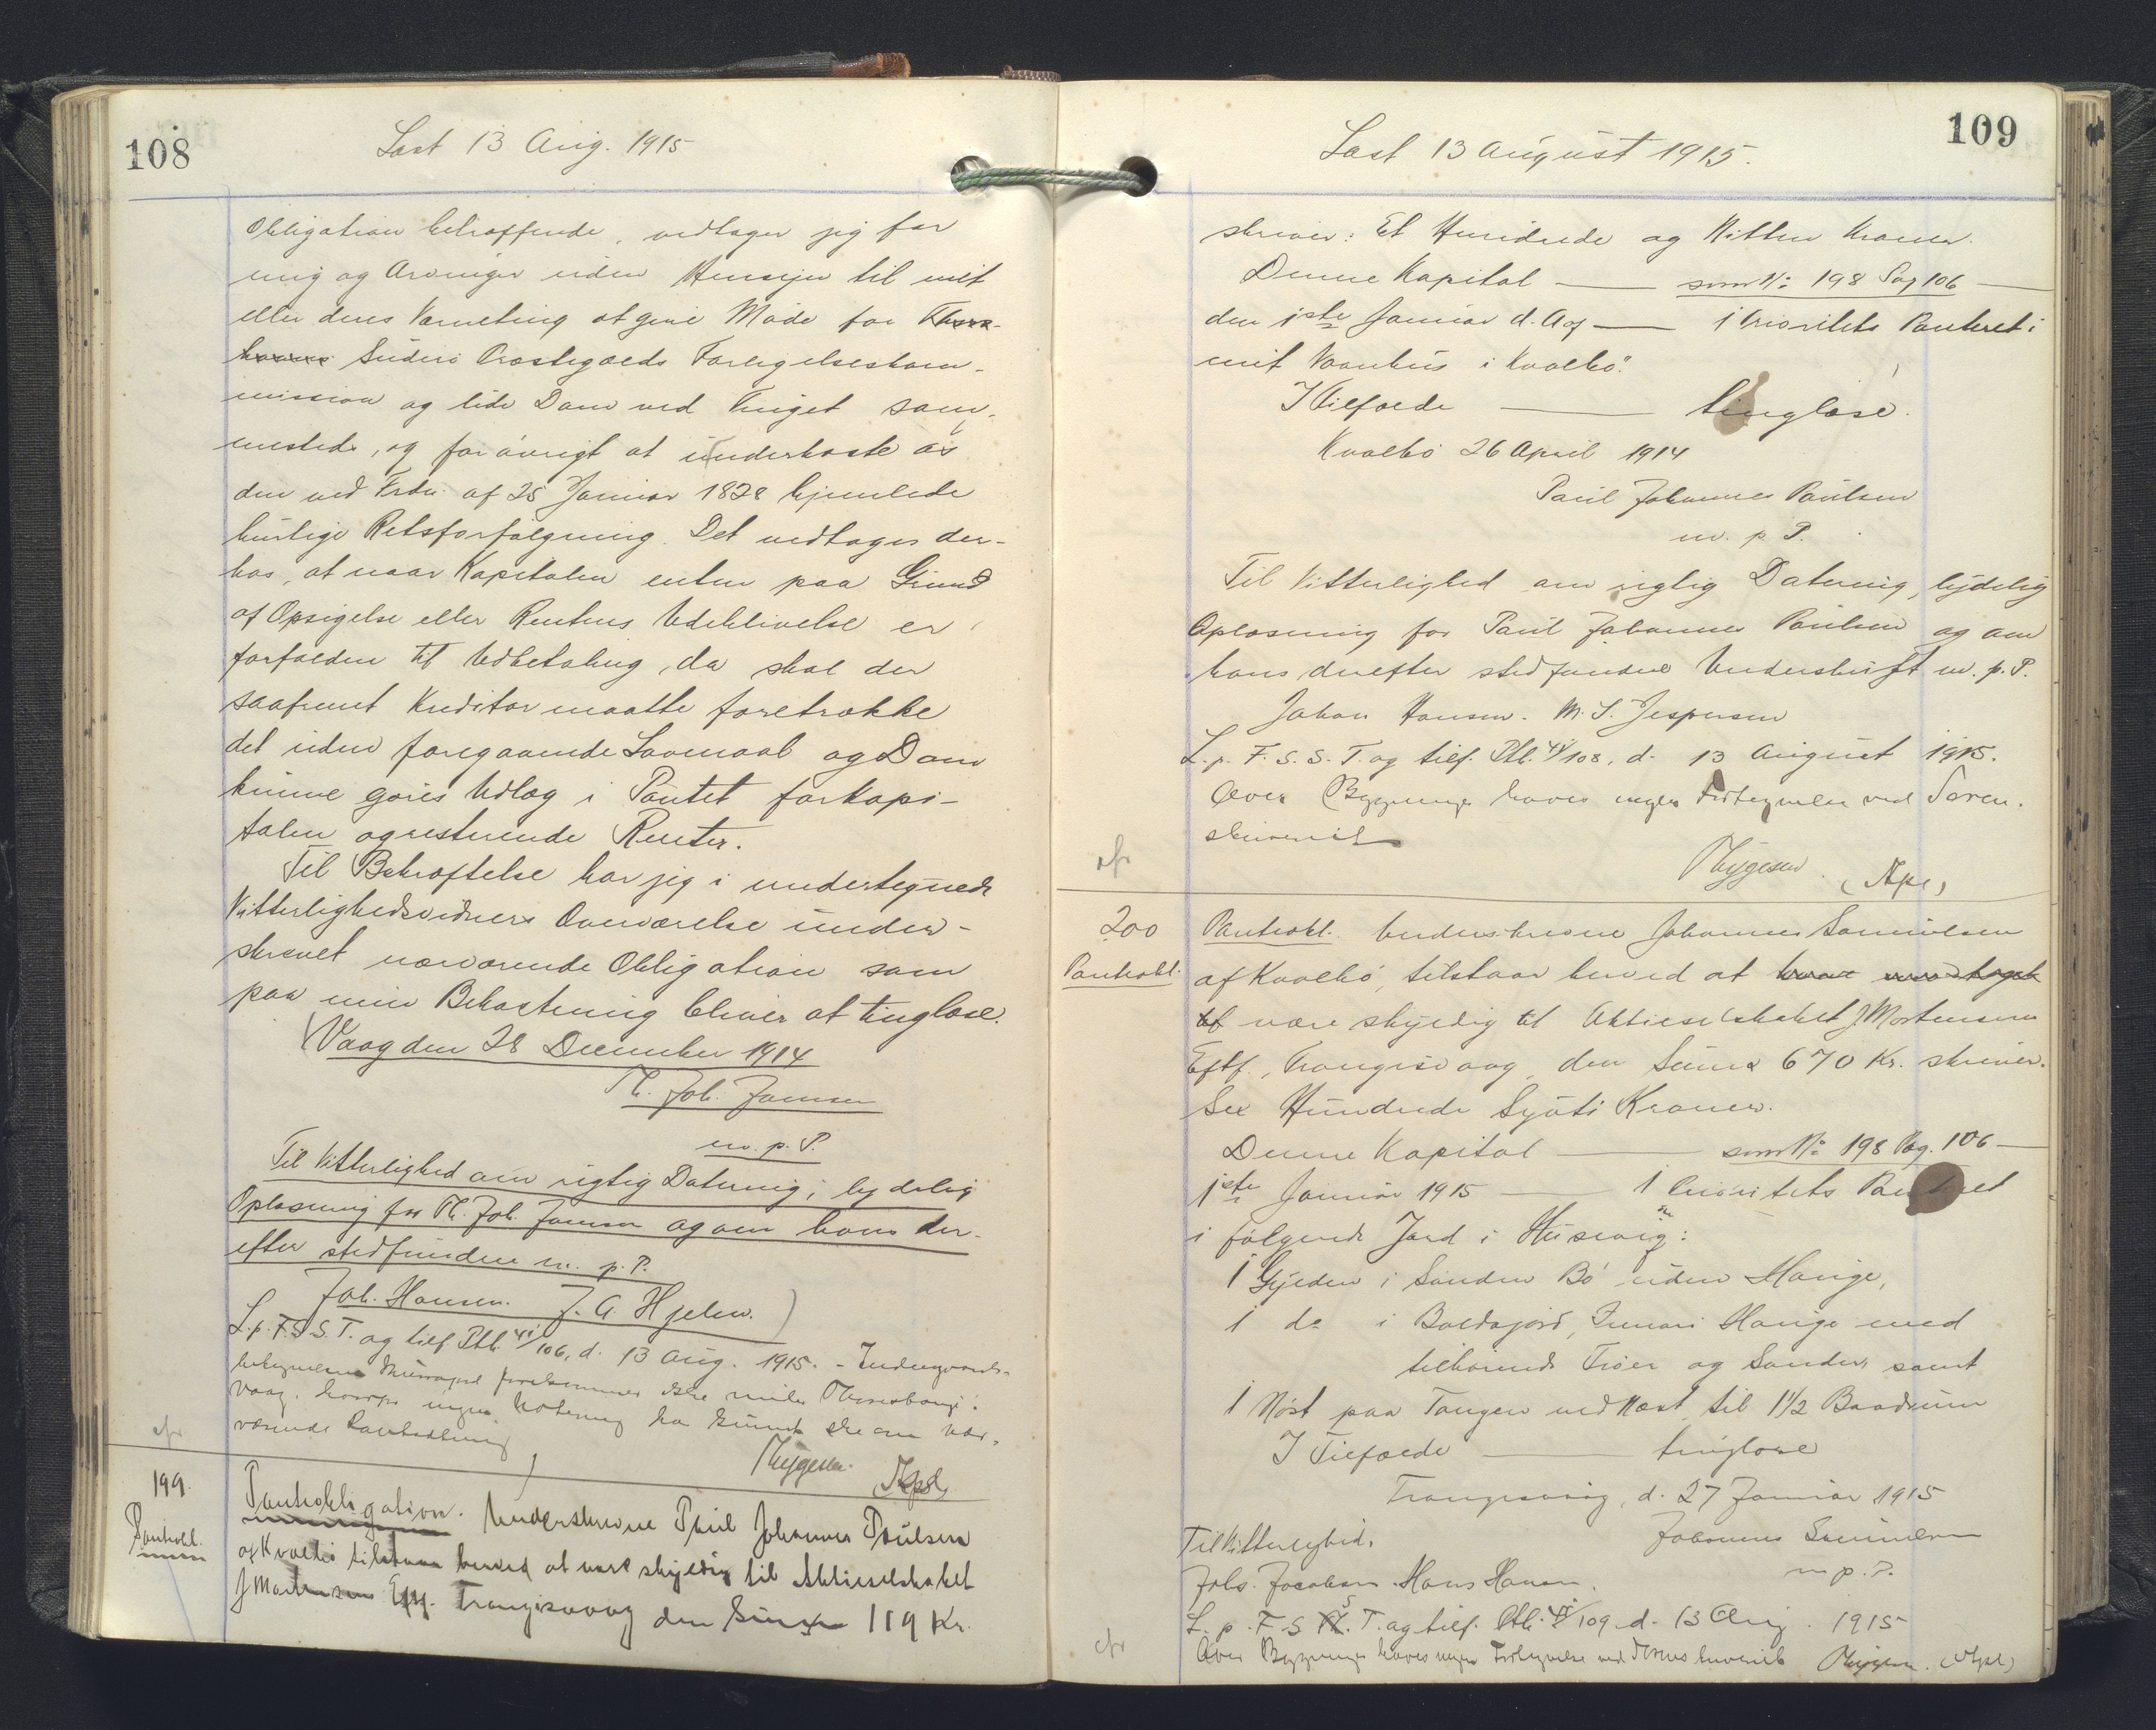 108
Læst 13 Aug. 1915
Obligation betræffende, vedtager jeg for
mig og Arvinger uden Hensyn til mit
eller deres Værneting at give Møde for Thors-
havns Suderø Præstegælds Forligelseskom-
mission og lide Dom ved Tinget sam-
mesteds, og forøvrigt at underkaste os
den ved Frdn. af 25 Januar 1828 hjemlede
hurtige Retsforfølgning. Det vedtages der-
hos, at naar Kapitalen enten paa Grund
af Opsigelse eller Rentens Udeblivelse er
forfalden til Udbetaling, da skal der
saafremt Kreditor maatte foretrække
det uden foregaaende Lovmaal og Dom
kunne gøres Udlæg i Pantet for Kapi-
talen og resterende Renter.
Til Bekræftelse har jeg i undertegnede
Vitterlighedsvidners Overværelse under-
skrevet nærværende Obligation som
paa min Bekostning bliver at tinglæse.
Vaag den 28 December 1914
Th. Joh. Jensen
m. p. P.
Til Vitterlighed om rigtig Datering, lydelig
Oplæsning for Th. Joh. Jensen og om hans der-
efter stedfundne m. p. P.
Joh. Hansen. J. A. Hjelm.
L. p. F. S. S. T. og tilf. Ptb. 4/106, d. 13 Aug. 1915. -
Vaag, hvorfor ingen Notering har kunnet ske om nær-
værende Pantsætning
Thygesen. (Kpl)
199.
Pantobl.
Pantobligation. Underskrevne Paul Johannes Poulsen
af Kvalbø tilstaar herved at være skyldig til Aktieselskabet
J Mortensens Eftf. Trangisvaag den Summa 119 Kr.
109
Læst 13 August 1915.
skriver: Et Hundrede og Nitten Kroner.
Denne Kapital — som No 198 Pag 106 —
den 1ste Januar d. A og — 1 Prioritets Panteret i
mit Vaanhus i Kvalbø."
I Tilfælde — tinglæse.
Kvalbø 26 April 1914
Paul Johannes Poulsen
m. p. P.
Til Vitterlighed om rigtig Datering, lydelig
Oplæsning for Paul Johannes Poulsen og om
hans derefter stedfundne Underskrift m. p. P.
Johan Hansen. M. S. Jespersen
L. p. F. S. S. T. og tilf. Ptb. 4/108, d. 13 August 1915.
Over Bygninger haves ingen Fortegnelse ved Soren-
skriveriet
Thygesen. (Kpl)
200
Pantobl.
Pantobl. Underskrevne Johannes Samuelsen
af Kvalbø, tilstaar herved at have modtaget
af være skyldig til Aktieselskabet J. Mortensens
Eftf., Trangisvaag, den Summa 670 Kr. skriver.
Sex Hundrede Syvti Kroner.
Denne Kapital — som No 198 Pag. 106 —
1ste Januar 1915 — 1 Prioritets Panteret
i følgende Jord i Husevig:
1 Gylden i Sønder Bø uden Hauge,
1 do i Boldsjord, Innari Hauge med
tilhørende Trøer og Sander samt
1 Nøst paa Tangen ved Næst til 1 1/2 Baadrum
I Tilfælde — tinglæse
Trangisvaag, d. 27 Januar 1915
Til Vitterlighed.
Johannes Samuelsen
m. p. P.
Johs. Jacobsen. Hans Hansen.
L. p. F. S S. T. og tilf. Ptb. 4/109 d. 13 Aug. 1915
Over Bygninger haves ingen Fortegnelse ved Sorenskriveriet Thygesen. (Kpl)